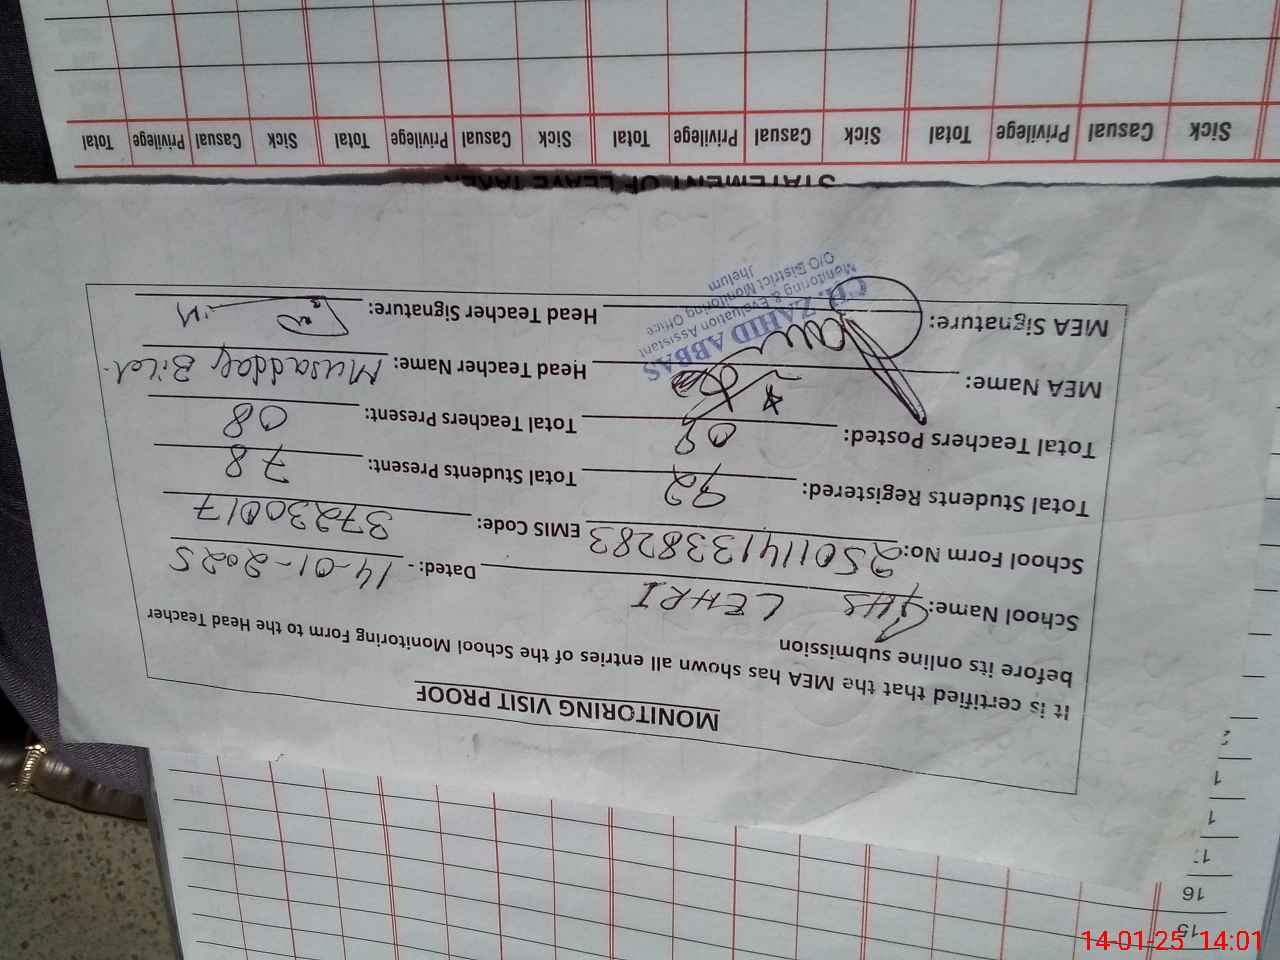 15
16
MONITORING VISIT PROOF
It is certified that the MEA has shown all entries of the School Monitoring Form to the Head Teacher
before its online submission
School Name: GHS LEHRI Dated: - 14-01-2025
School Form No: 2501141338283 EMIS Code: 37230017
Total Students Registered: 92 Total Students Present: 78
Total Teachers Posted: 08 Total Teachers Present: 08
MEA Name: Head Teacher Name: Musaddaq Bilal
MEA Signature: Head Teacher Signature:
CH. ZAHID ABBAS
Monitoring & Evaluation Assistant
O/O District Monitoring Office
Jhelum
STATEMENT OF LEAVE TAKEN
Sick Casual Privilege Total Sick Casual Privilege Total Sick Casual Privilege Total Sick Casual Privilege Total
14-01-25 14:01